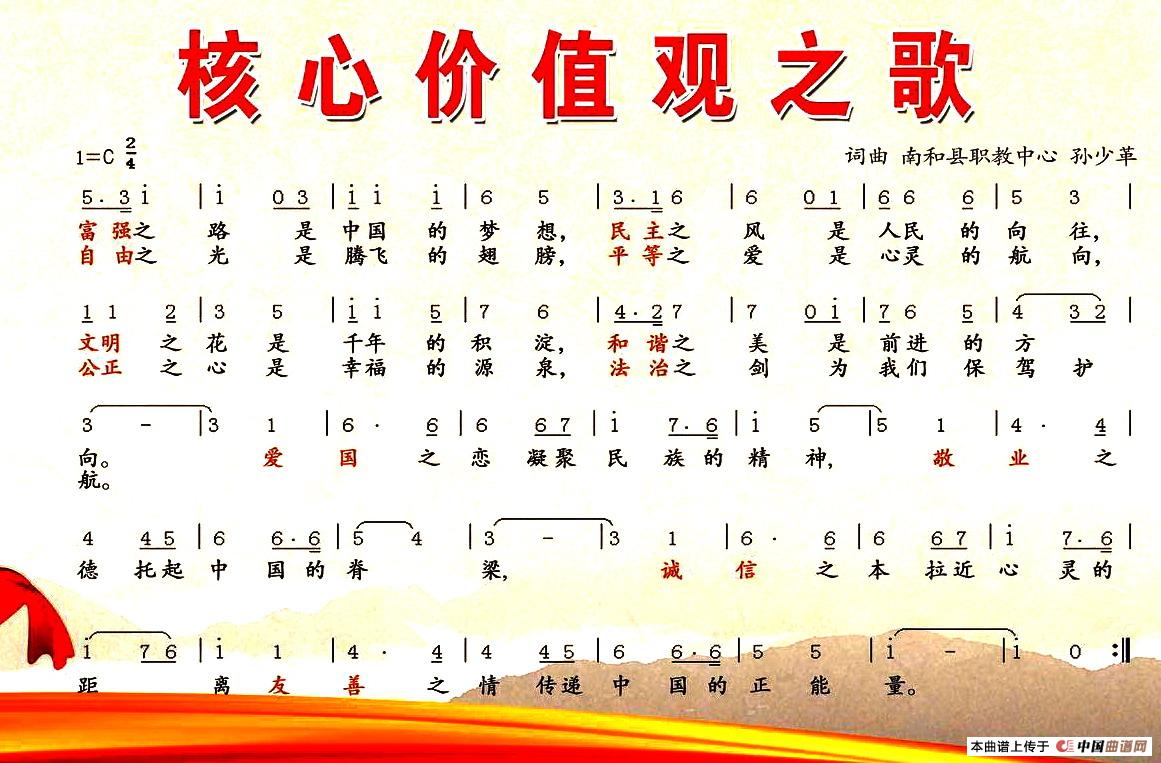 核心价值观之歌
1=C 2/4
词曲 南和县职教中心 孙少革
5. 3 i | i 0 3 | i i i | 6 5 | 3. 1 6 | 6 0 1 | 6 6 6 | 5 3 |
富强之 路 是 中国 的 梦 想, 民主之 风 是 人民 的 向 往,
自由之 光 是 腾飞 的 翅 膀, 平等之 爱 是 心灵 的 航 向,
1 1 2 | 3 5 | i i 5 | 7 6 | 4. 2 7 | 7 0 i | 7 6 5 | 4 3 2 |
文明 之 花 是 千年 的 积 淀, 和谐之 美 是 前进 的 方
公正 之 心 是 幸福 的 源 泉, 法治之 剑 为 我们 保 驾 护
3 - | 3 1 | 6 · 6 | 6 6 7 | i 7. 6 | i 5 | 5 1 | 4 · 4 |
向。 爱 国 之 恋 凝聚 民 族的 精 神, 敬 业 之
航。
4 4 5 | 6 6. 6 | 5 4 | 3 - | 3 1 | 6 · 6 | 6 6 7 | i 7. 6 |
德 托起 中 国的 脊 梁, 诚 信 之 本 拉近 心 灵的
i 7 6 | i 1 | 4 · 4 | 4 4 5 | 6 6. 6 | 5 5 | i - | i 0 :‖
距 离 友 善 之 情 传递 中 国的 正 能 量。
本曲谱上传于 中国曲谱网